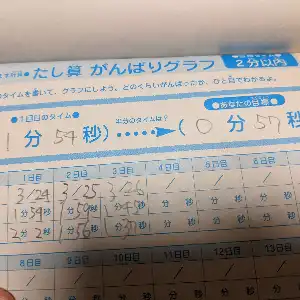 たし算 がんばりグラフ
2分以内
のタイムを書いて、グラフにしよう。どのくらいがんばったか、ひと目でわかるよ。
●1日目のタイム●
●あなたの目標●
1分54秒)・・・・・→(0分57秒
1日目 2日目 3日目 4日目 5日目 6日目
3/24 3/25 3/26 / / /
1分54秒 1分59秒 1分45秒 分 秒 分 秒 分 秒
2分2秒 1分56秒 分 秒 分 秒 分 秒
8日目 9日目 10日目 11日目 12日目 13日目
/ / / / / /